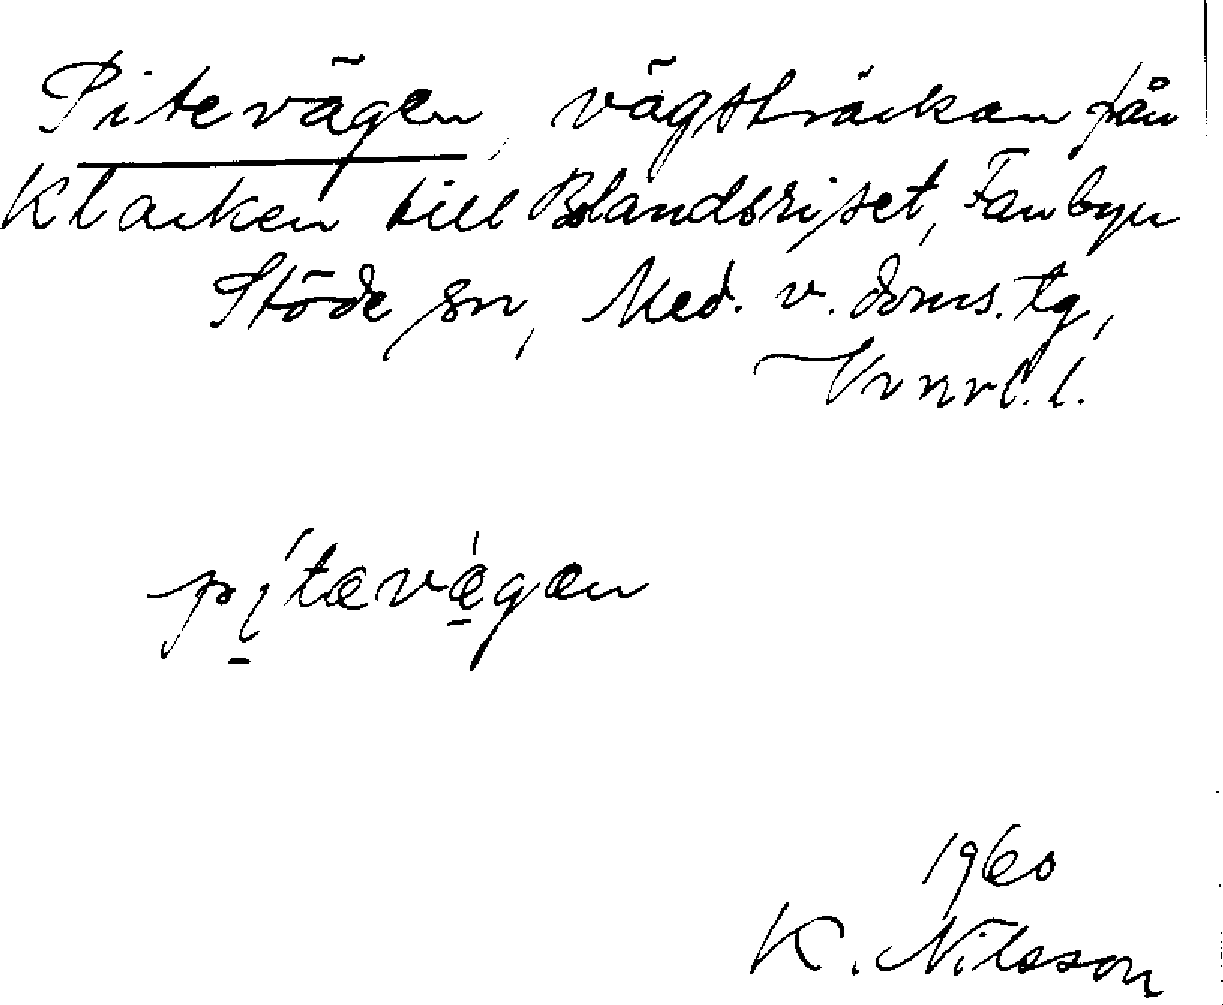 Pitevägen, vägsträckan från
Klacken till Blandsriset, Fanbyn
Stöde sn, Med. v. doms. tg,
Vrnrl. l.
pítævǽgæn
1960
K. Nilsson